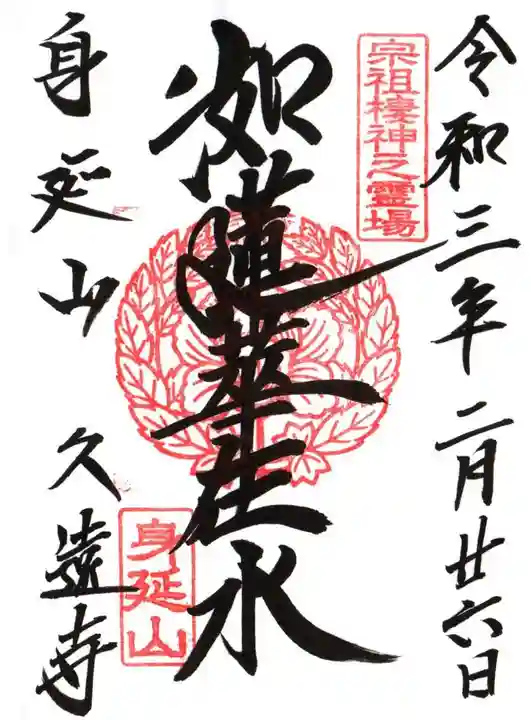 令和三年二月廿六日
宗祖棲神之霊場
如蓮華在水
身延山
身延山 久遠寺